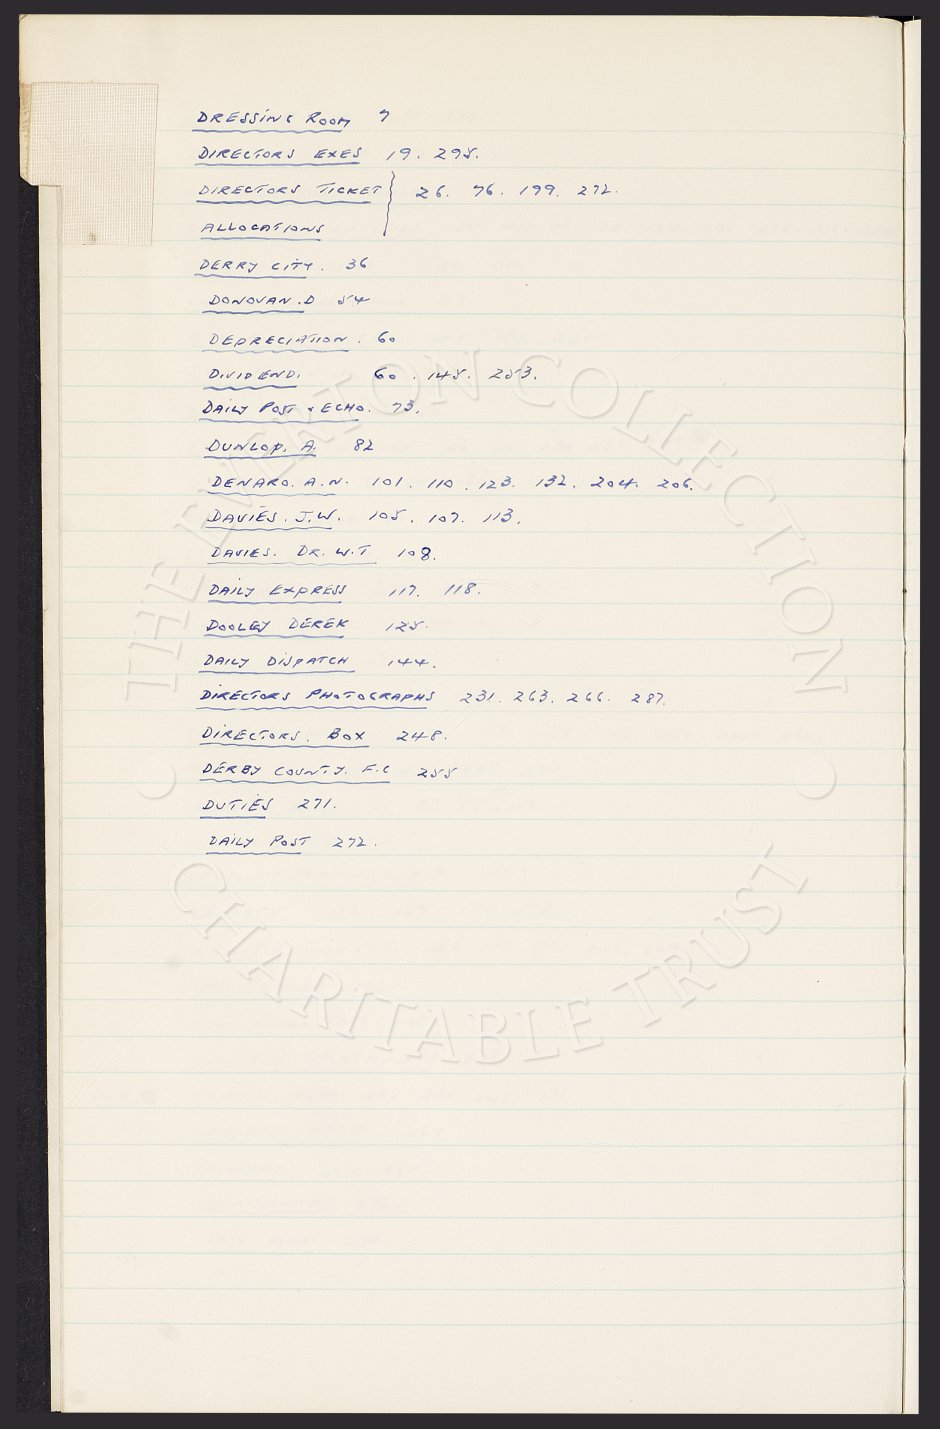 DRESSING ROOM 7
DIRECTORS EXES 19. 295.
DIRECTORS TICKET } 26. 76. 199. 272.
ALLOCATIONS
DERRY CITY. 36
DONOVAN. D 54
DEPRECIATION. 60
DIVIDEND. 60. 145. 253.
DAILY POST & ECHO. 73.
DUNLOP. A. 82
DENARO. A.N. 101. 110. 123. 132. 204. 206.
DAVIES. J.W. 105. 107. 113.
DAVIES. DR. W.T 108.
DAILY EXPRESS 117. 118.
DOOLEY DEREK 125.
DAILY DISPATCH 144.
DIRECTORS PHOTOGRAPHS 231. 263. 266. 287.
DIRECTORS. BOX 248.
DERBY COUNTY. F.C 255
DUTIES 271.
DAILY POST 272.
THE EVERTON COLLECTION
CHARITABLE TRUST